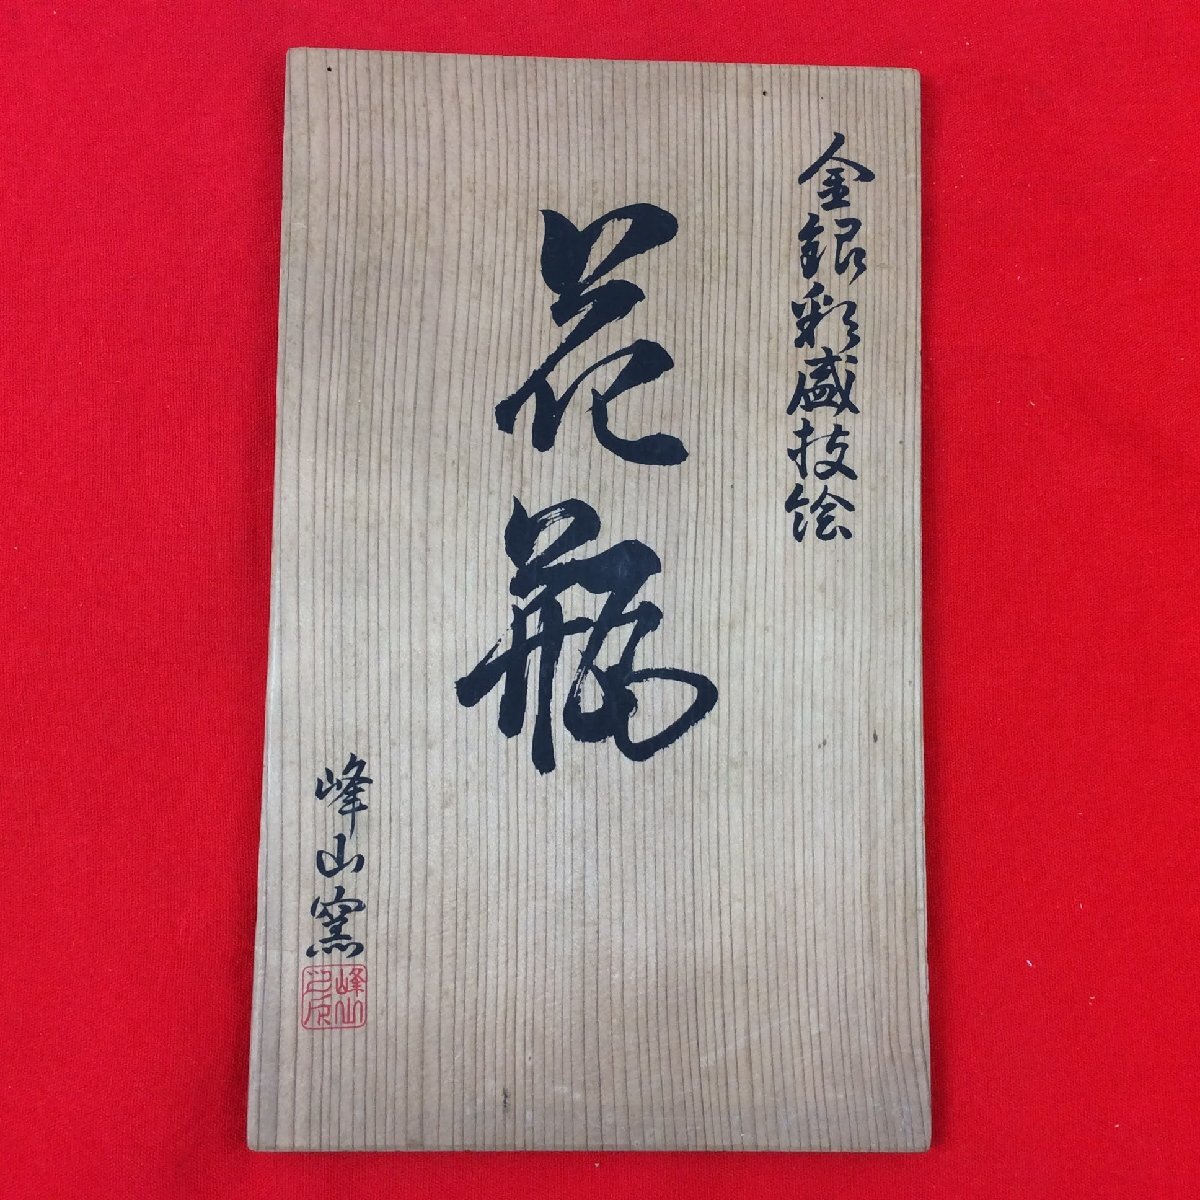 金銀彩盛技絵
花瓶
峰山窯
峰山